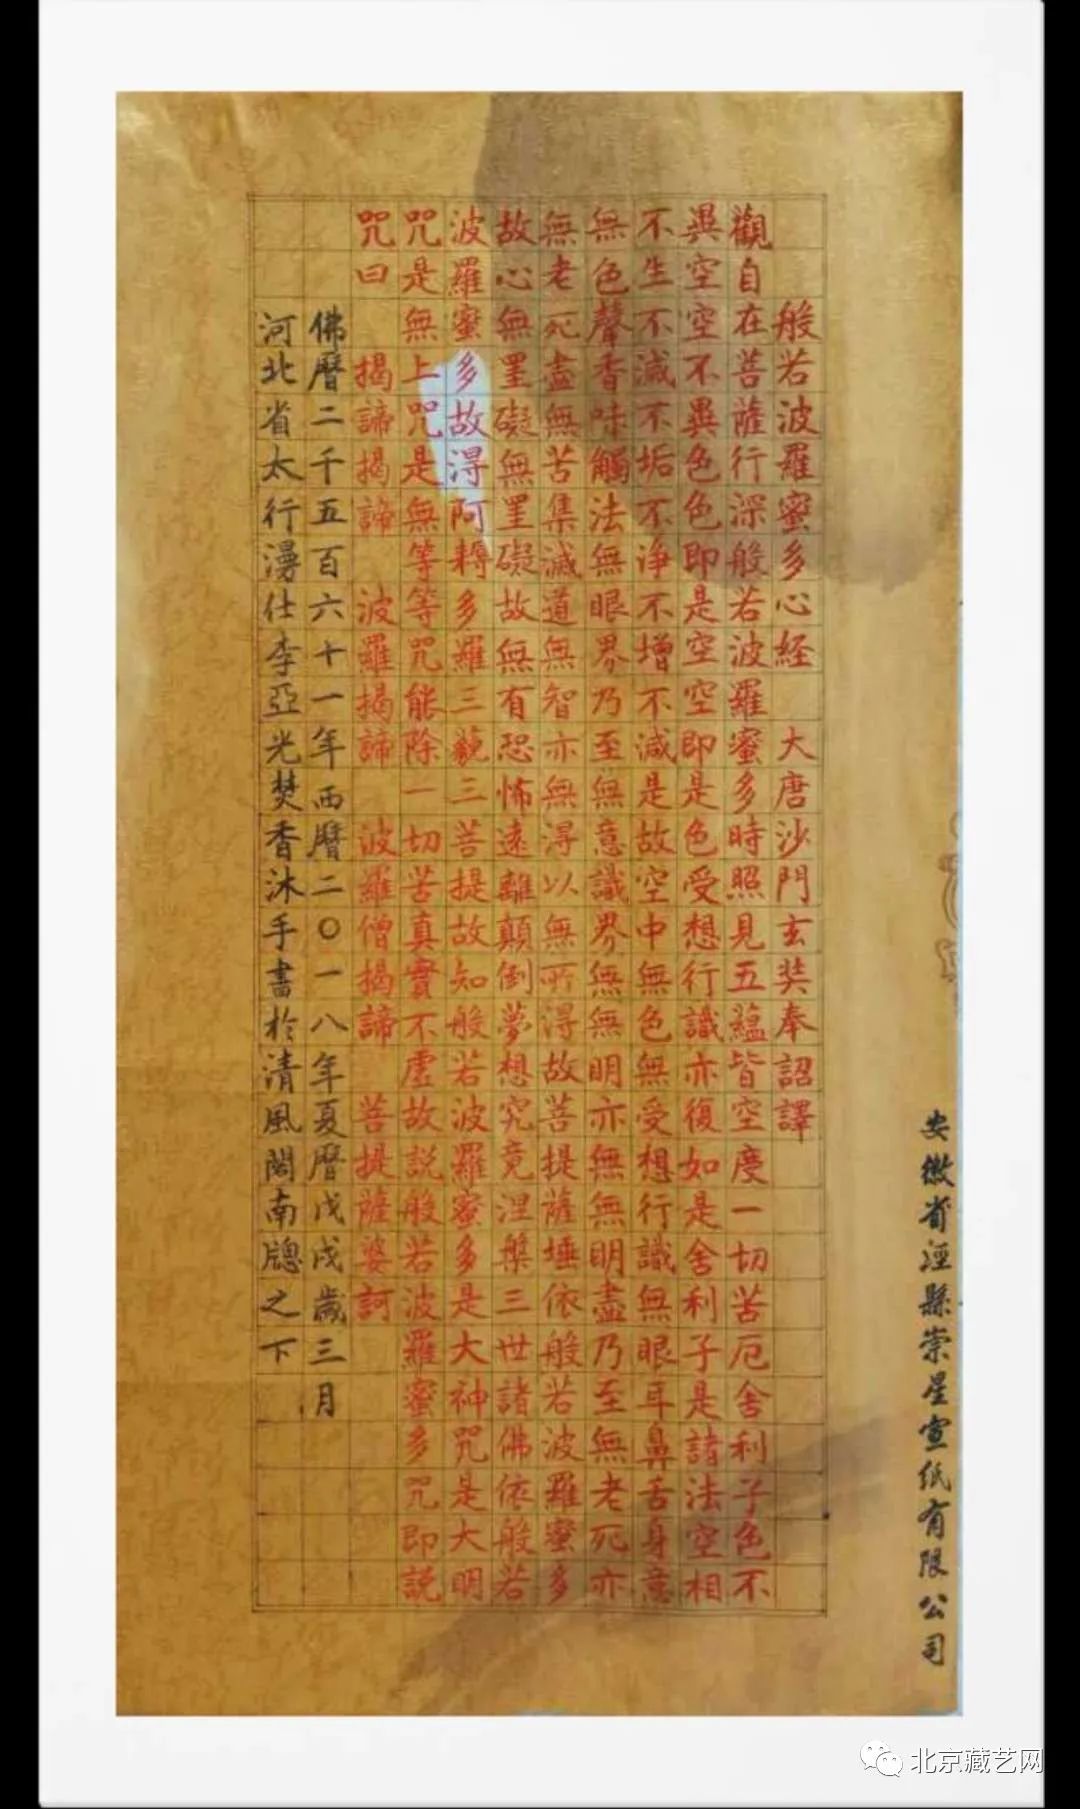 安徽省涇縣崇星宣紙有限公司
般若波羅蜜多心経 大唐沙門玄奘奉詔譯
觀自在菩薩行深般若波羅蜜多時照見五蘊皆空度一切苦厄舍利子色不
異空空不異色色即是空空即是色受想行識亦復如是舍利子是諸法空相
不生不滅不垢不淨不增不減是故空中無色無受想行識無眼耳鼻舌身意
無色聲香味觸法無眼界乃至無意識界無無明亦無無明盡乃至無老死亦
無老死盡無苦集滅道無智亦無得以無所得故菩提薩埵依般若波羅蜜多
故心無罣礙無罣礙故無有恐怖遠離顛倒夢想究竟涅槃三世諸佛依般若
波羅蜜多故得阿耨多羅三藐三菩提故知般若波羅蜜多是大神咒是大明
咒是無上咒是無等等咒能除一切苦真實不虛故説般若波羅蜜多咒即説
咒曰 揭諦揭諦 波羅揭諦 波羅僧揭諦 菩提薩婆訶
佛曆二千五百六十一年西曆二〇一八年夏曆戊戌歲三月
河北省太行漫仕李亞光焚香沐手書於清風閣南牕之下
北京藏艺网